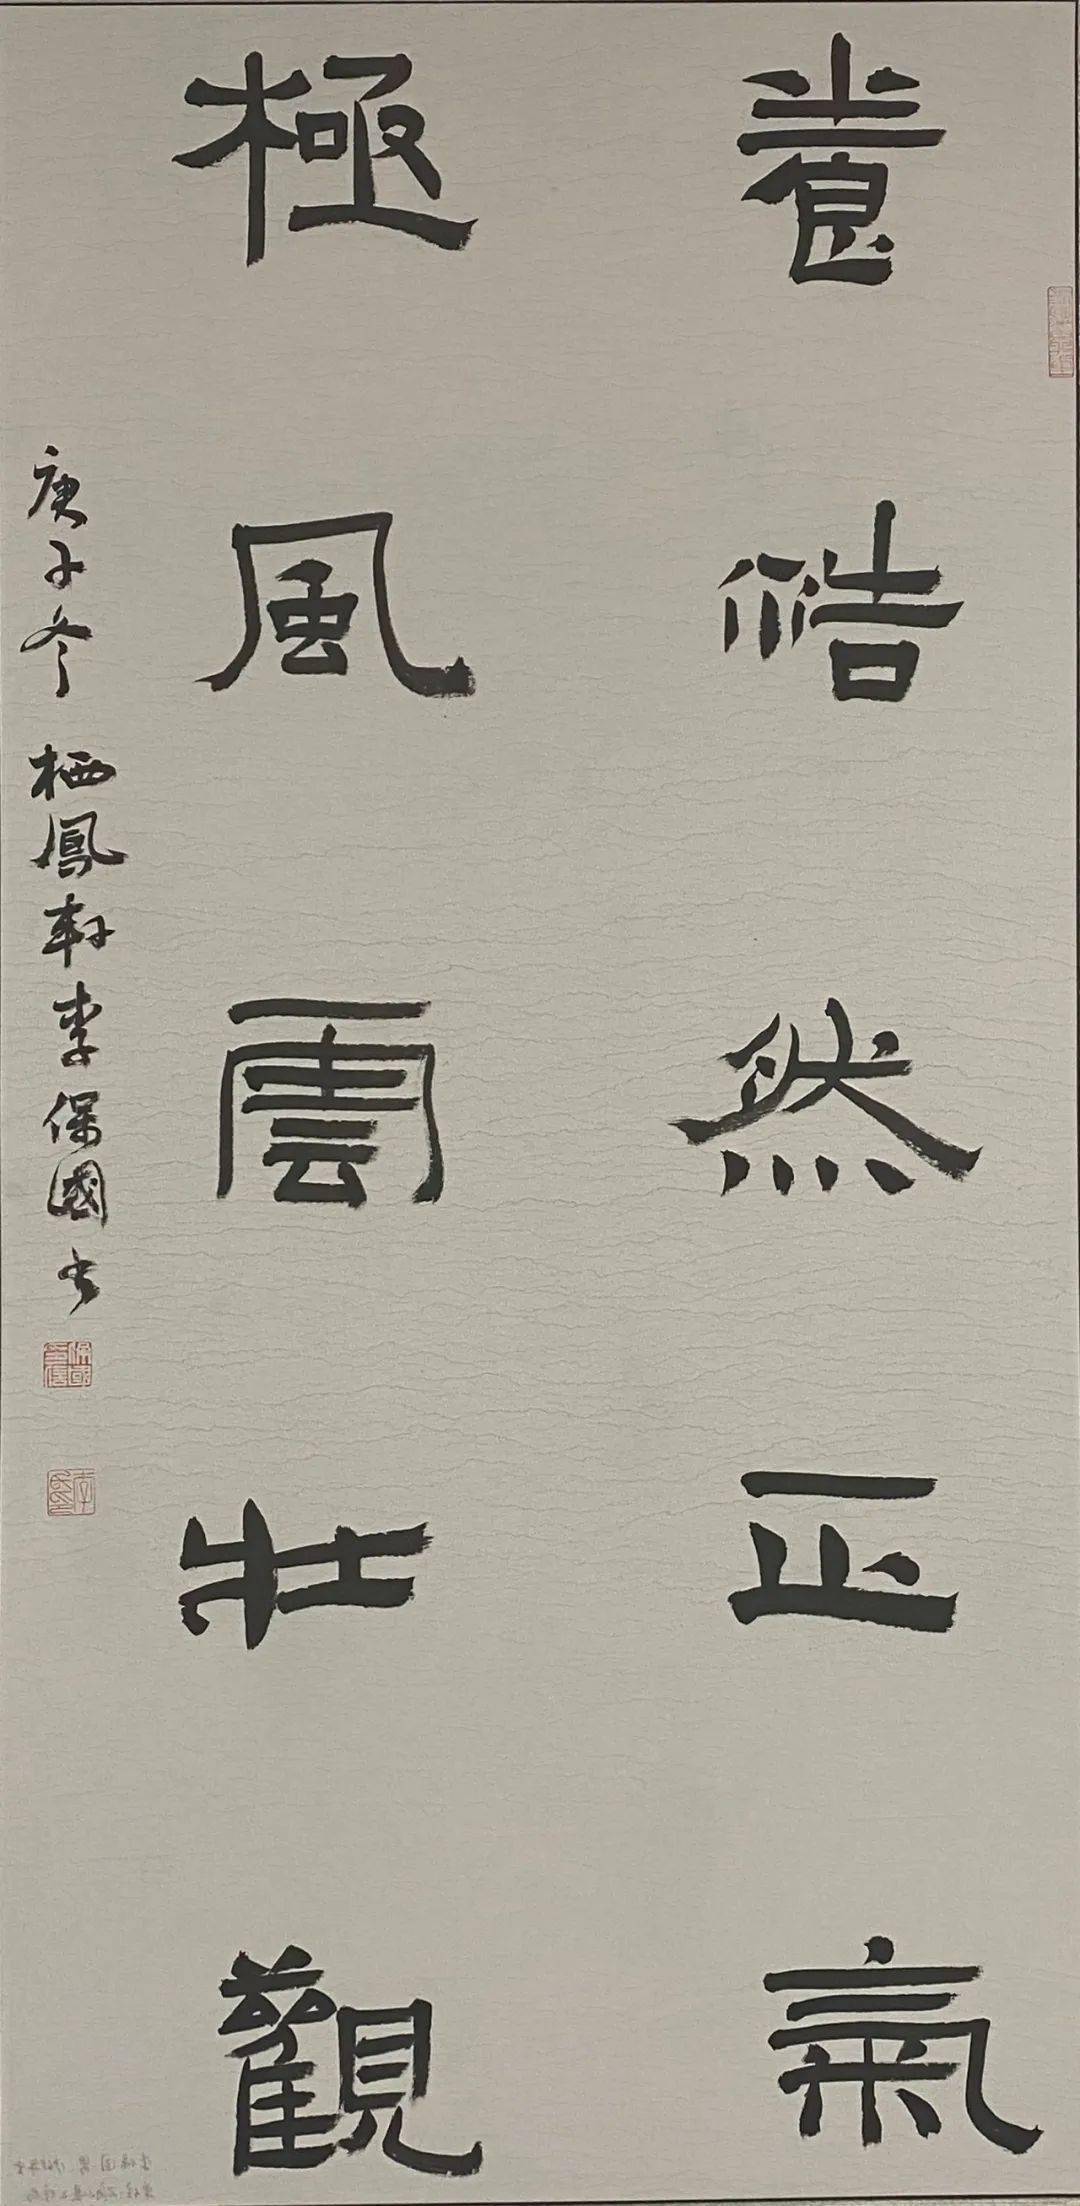 養浩然正氣
極風雲壯觀
庚子冬 栖鳳軒李保國书